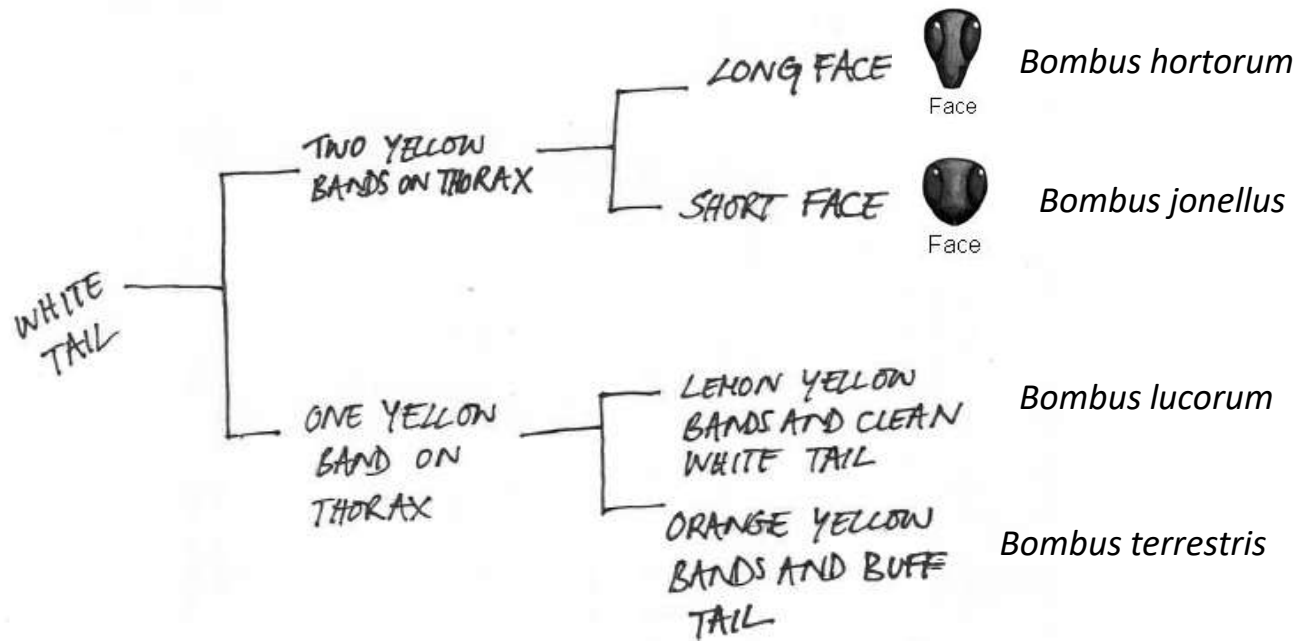 WHITE
TAIL
TWO YELLOW
BANDS ON THORAX
LONG FACE
Face
Bombus hortorum
SHORT FACE
Face
Bombus jonellus
ONE YELLOW
BAND ON
THORAX
LEMON YELLOW
BANDS AND CLEAN
WHITE TAIL
Bombus lucorum
ORANGE YELLOW
BANDS AND BUFF
TAIL
Bombus terrestris